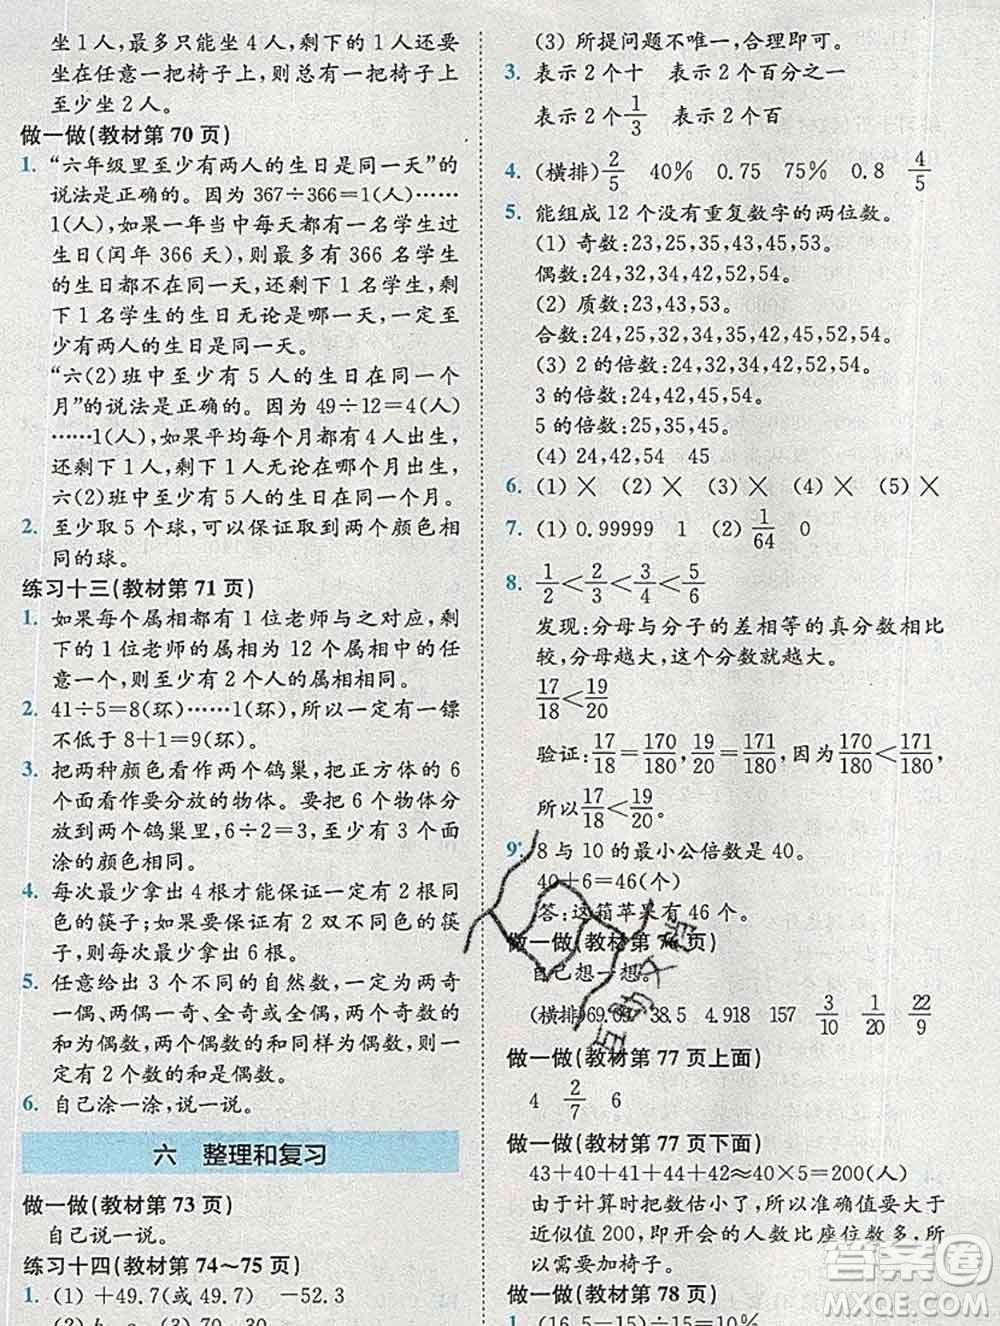 坐1人,最多只能坐4人,剩下的1人还要
坐在任意一把椅子上,则总有一把椅子上
至少坐2人。
做一做(教材第70页)
1. “六年级里至少有两人的生日是同一天”的
说法是正确的。因为367÷366=1(人)……
1(人),如果一年当中每天都有一名学生过
生日(闰年366天),那么至少有366名学
生的生日都不在同一天,还剩下1名学生,剩
下的1名学生的生日无论是哪一天,一定至
少有两人的生日是同一天。
“六(2)班中至少有5人的生日在同一个
月”的说法是正确的。因为49÷12=4(人)
……1(人),如果平均每个月有4人出生,
还剩下1人,剩下的1人无论在哪个月出生,
六(2)班中至少有5人的生日在同一个月。
2. 至少取5个球,可以保证取到两个颜色相
同的球。
练习十三(教材第71页)
1. 如果每个属相都有1位老师与之对应,剩
下的1位老师的属相为12个属相中的任
意一个,则至少有2个人的属相相同。
2. 41÷5=8(环)……1(环),所以一定有一镖
不低于8+1=9(环)。
3. 把两种颜色看作两个鸽巢,把正方体的6
个面看作要分放的物体。要把6个物体分
放到两个鸽巢里,6÷2=3,至少有3个面
涂的颜色相同。
4. 每次最少拿出4根才能保证一定有2根同
色的筷子;如果要保证有2双不同色的筷
子,则每次最少拿出6根。
5. 任意给出3个不同的自然数,一定为两奇
一偶、两偶一奇、全奇或全偶,两个奇数的
和为偶数,两个偶数的和同样为偶数,所以
一定有2个数的和是偶数。
6. 自己涂一涂,说一说。
六 整理和复习
做一做(教材第73页)
自己说一说。
练习十四(教材第74~75页)
1. (1) +49.7(或49.7) -52.3
(3) 所提问题不唯一,合理即可。
3. 表示2个十 表示2个百分之一
表示2个1/3 表示2个百
4. (横排)2/5 40% 0.75 75% 0.8 4/5
5. 能组成12个没有重复数字的两位数。
(1) 奇数:23,25,35,43,45,53。
偶数:24,32,34,42,52,54。
(2) 质数:23,43,53。
合数:24,25,32,34,35,42,45,52,54。
(3) 2的倍数:24,32,34,42,52,54。
3的倍数:24,42,45,54。
5的倍数:25,35,45。
(4) 24,42,54 45
6. (1)× (2)× (3)× (4)× (5)×
7. (1) 0.99999 1 (2) 1/64 0
8. 1/2<2/3<3/4<5/6
发现:分母与分子的差相等的真分数相比
较,分母越大,这个分数就越大。
17/18<19/20
验证:17/18=170/180,19/20=171/180,因为170/180<171/180,
所以17/18<19/20。
9. 8与10的最小公倍数是40。
40+6=46(个)
答:这箱苹果有46个。
做一做(教材第76页)
自己想一想。
(横排)69.04 38.5 4.918 157 3/10 1/20 22/9
做一做(教材第77页上面)
4 2/7 6
做一做(教材第77页下面)
43+40+41+44+42≈40×5=200(人)
由于计算时把数估小了,所以准确值要大于
近似值200,即开会的人数比座位数多,所
以需要加椅子。
做一做(教材第78页)
1. (16.5-15)÷15=10%
答案圈
MXQE.COM